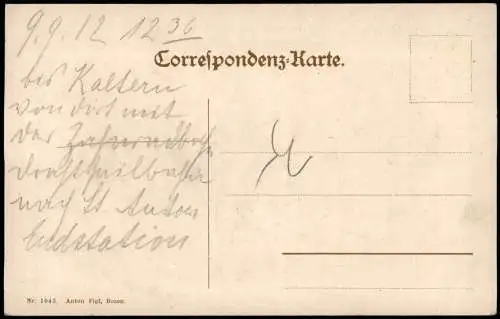 9.9.12 12 36
Correspondenz-Karte.
bis Kaltern
von dort mit
der Zahnradbahn
Drahtseilbahn
nach St Anton
Endstation
Nr. 1043. Anton Figl, Bozen.